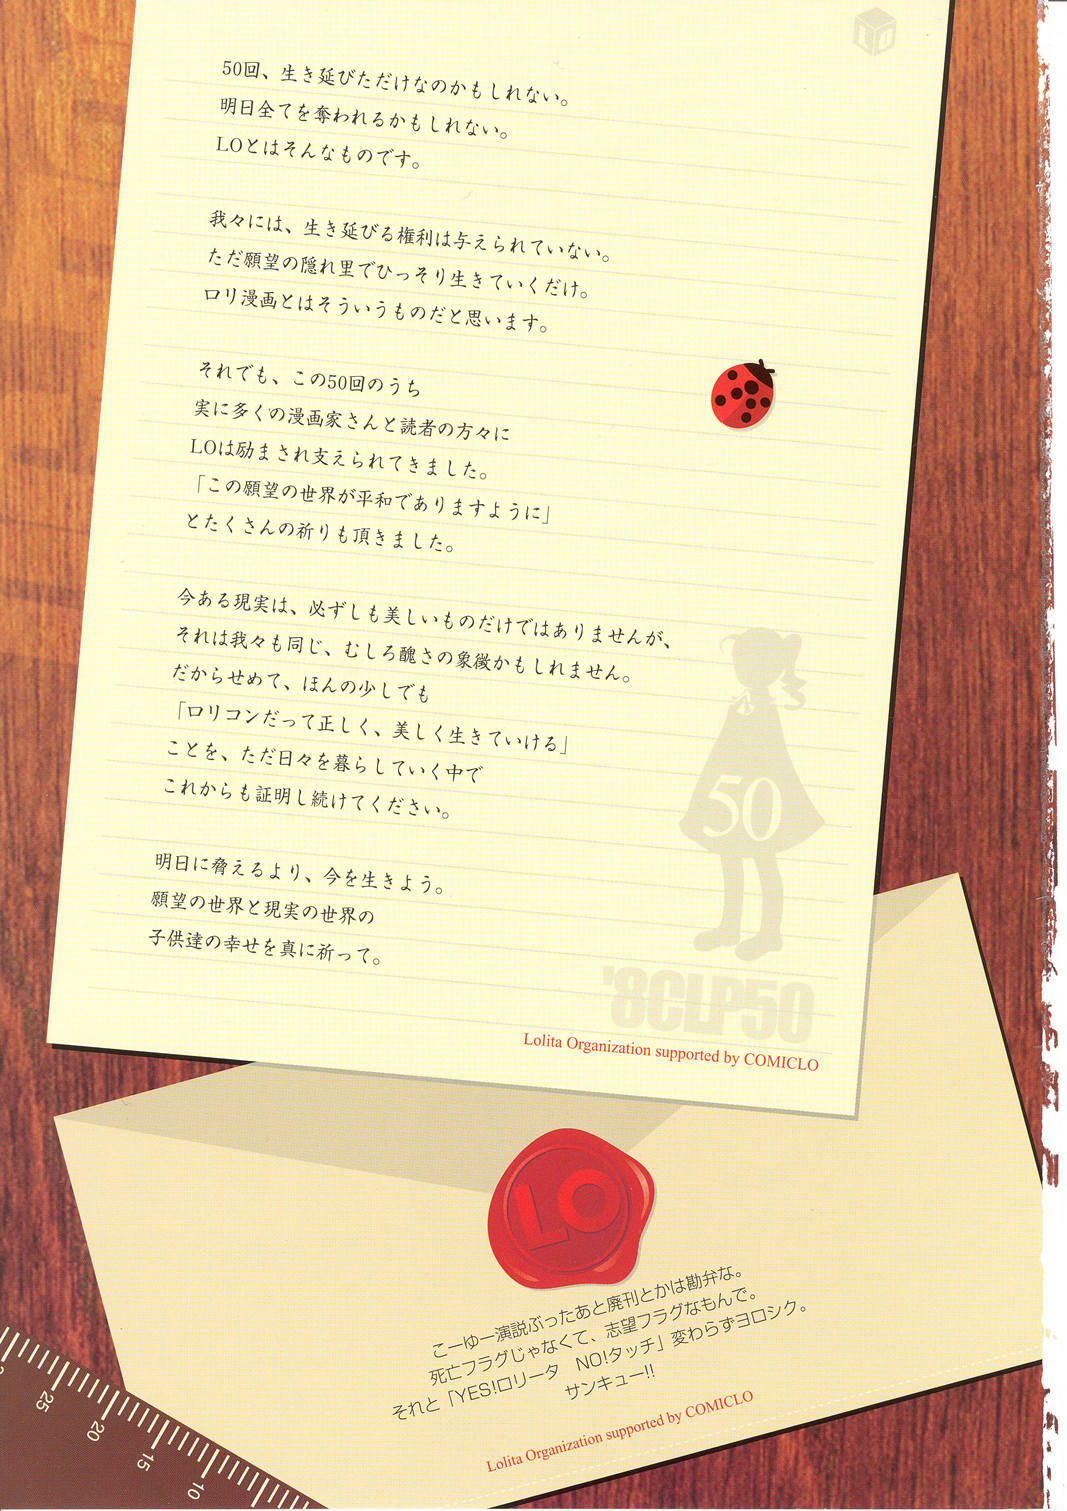 50回、生き延びただけなのかもしれない。
明日全てを奪われるかもしれない。
LOとはそんなものです。
我々には、生き延びる権利は与えられていない。
ただ願望の隠れ里でひっそり生きていくだけ。
ロリ漫画とはそういうものだと思います。
それでも、この50回のうち
実に多くの漫画家さんと読者の方々に
LOは励まされ支えられてきました。
「この願望の世界が平和でありますように」
とたくさんの祈りも頂きました。
今ある現実は、必ずしも美しいものだけではありませんが、
それは我々も同じ、むしろ醜さの象徴かもしれません。
だからせめて、ほんの少しでも
「ロリコンだって正しく、美しく生きていける」
ことを、ただ日々を暮らしていく中で
これからも証明し続けてください。
明日に脅えるより、今を生きよう。
願望の世界と現実の世界の
子供達の幸せを真に祈って。
50
'8CLP50
Lolita Organization supported by COMICLO
LO
こーゆー演説ぶったあと廃刊とかは勘弁な。
死亡フラグじゃなくて、志望フラグなもんで。
それと「YES!ロリータ　NO!タッチ」変わらずヨロシク。
サンキュー!!
Lolita Organization supported by COMICLO
25
20
15
10